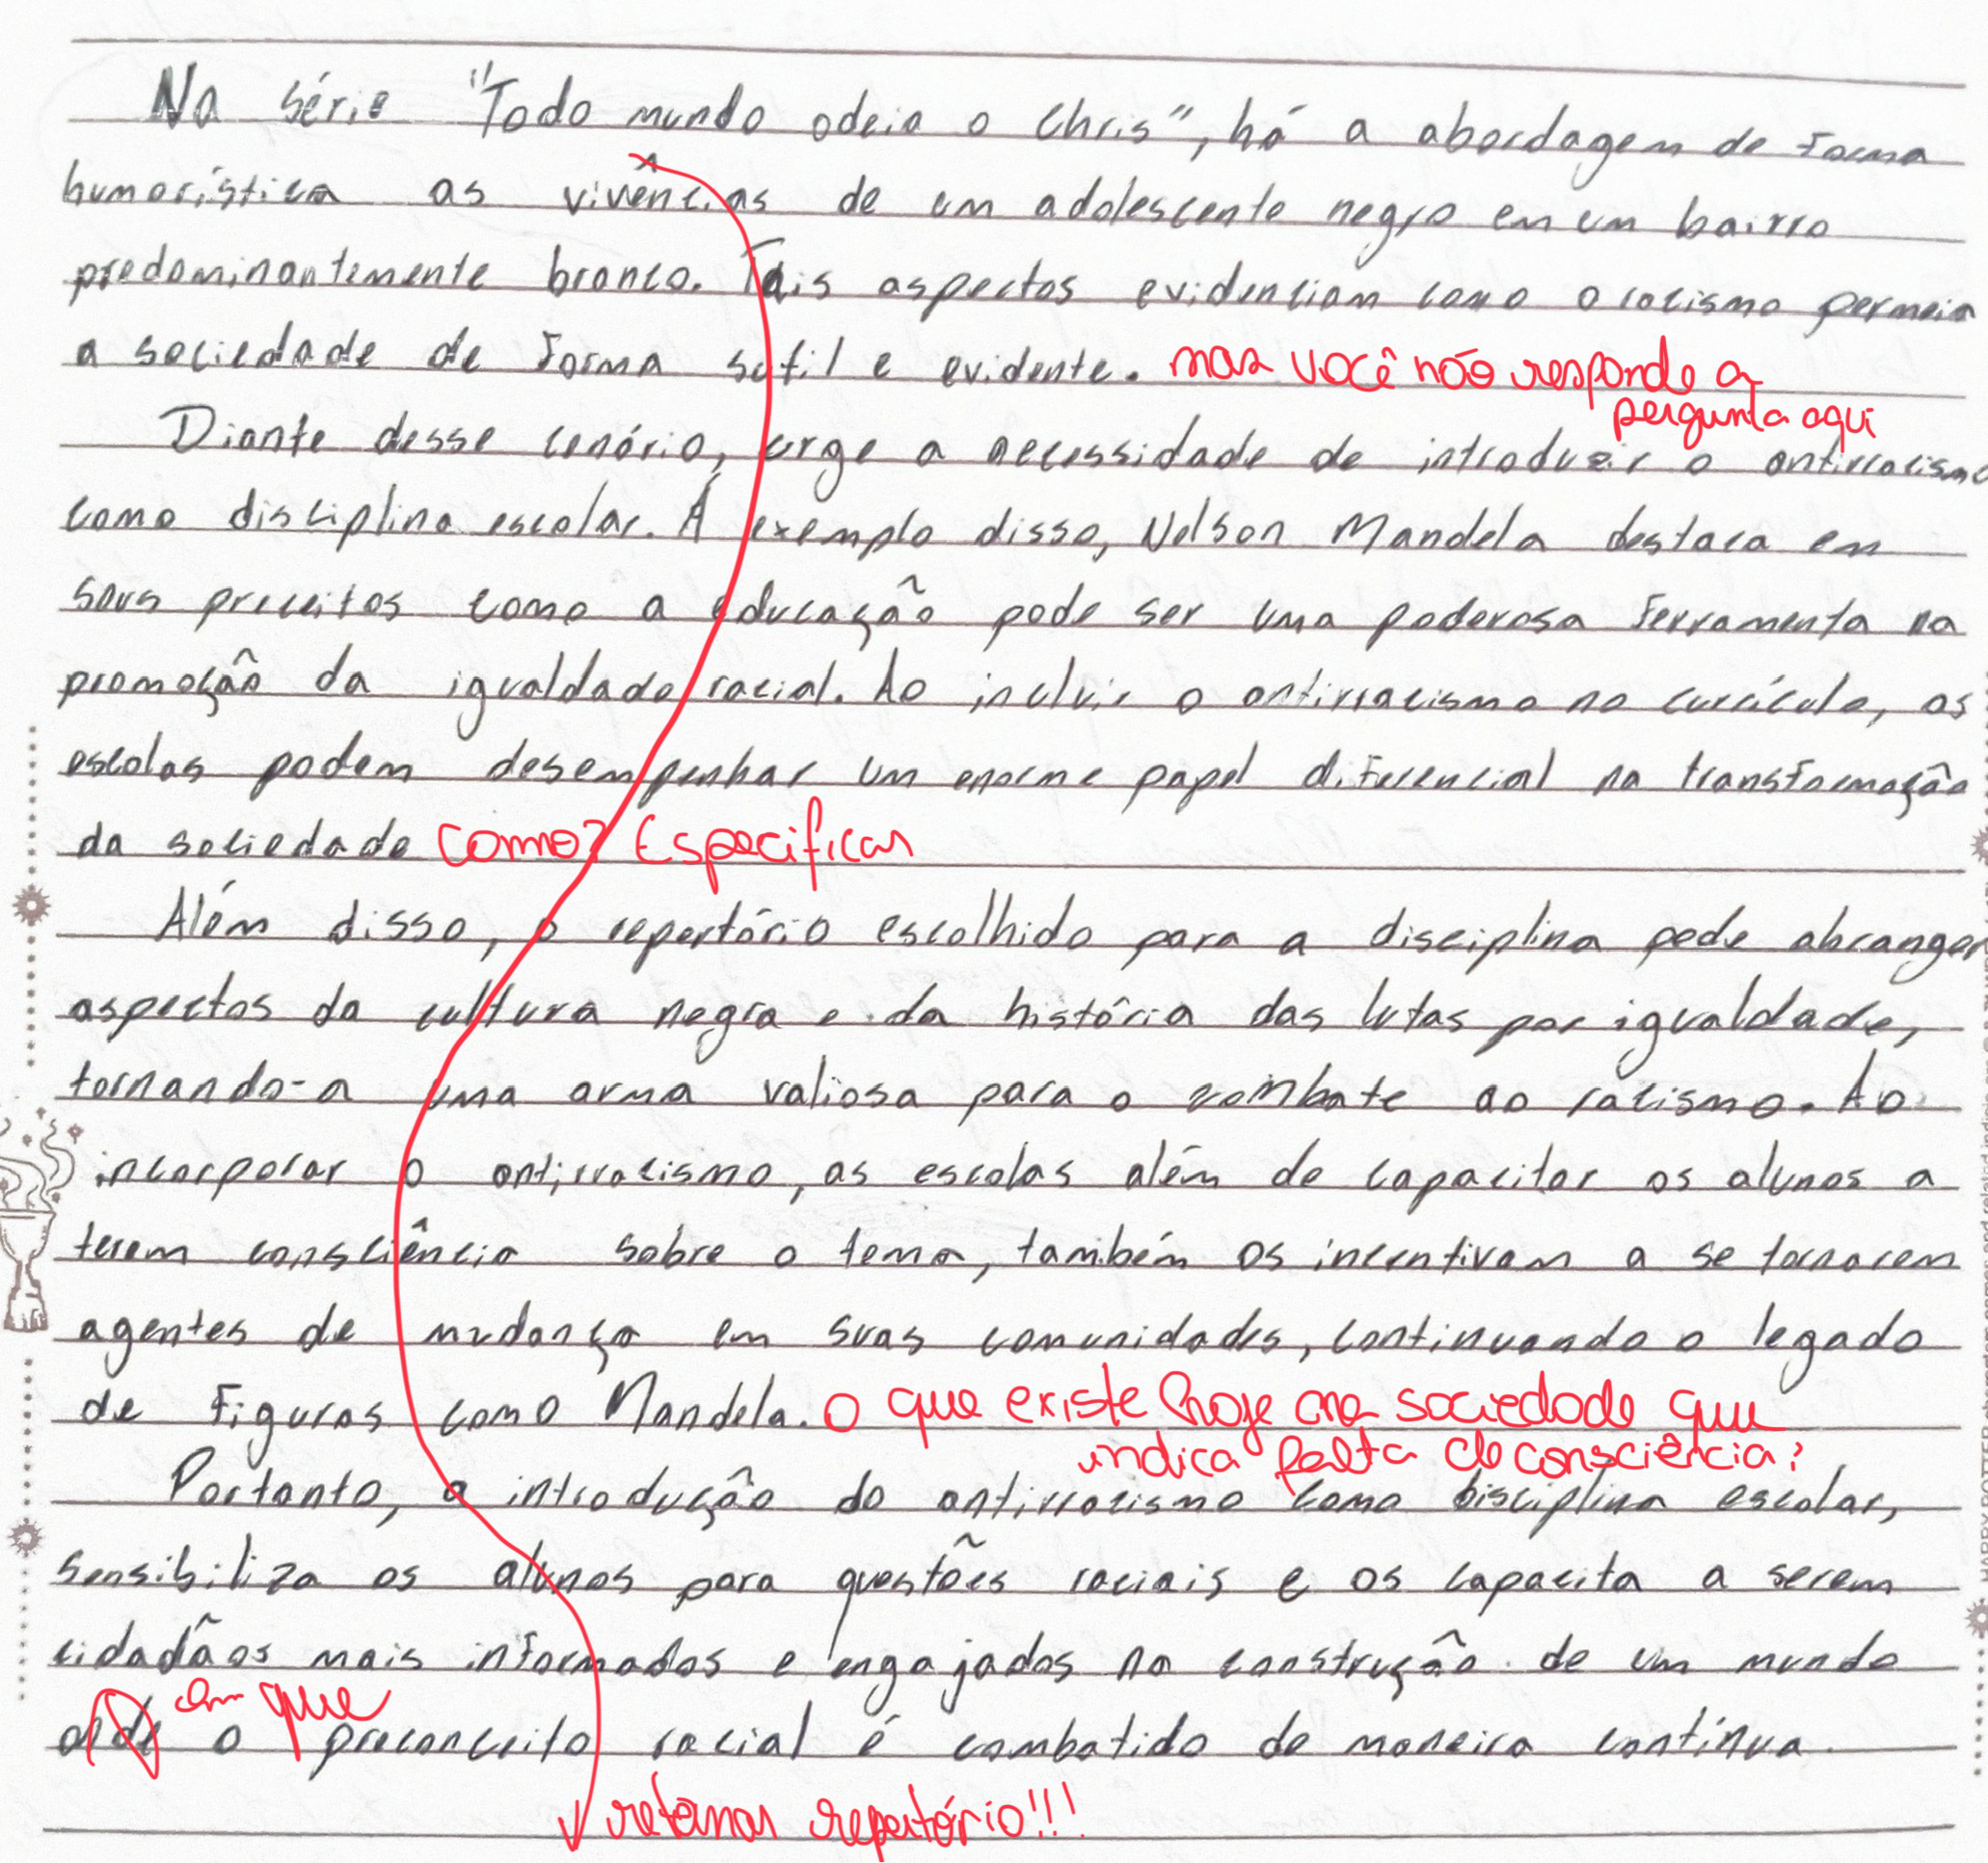 Na série "Todo mundo odeia o Chris", há a abordagem de forma
humorística as vivências de um adolescente negro em um bairro
predominantemente branco. Tais aspectos evidenciam como o racismo permeia
a sociedade de forma sutil e evidente. mas você não responde a
pergunta aqui
Diante desse cenário, urge a necessidade de introduzir o antirracismo
como disciplina escolar. Á exemplo disso, Nelson Mandela destaca em
seus preceitos como a educação pode ser uma poderosa ferramenta na
promoção da igualdade racial. Ao incluir o antirracismo no currículo, as
escolas podem desempenhar um enorme papel diferencial na transformação
da sociedade como? Especificar
Além disso, o repertório escolhido para a disciplina pode abranger
aspectos da cultura negra e da história das lutas por igualdade,
tornando-a uma arma valiosa para o combate ao racismo. Ao
incorporar o antirracismo, as escolas além de capacitar os alunos a
terem consciência sobre o tema, também os incentivam a se tornarem
agentes de mudança em suas comunidades, continuando o legado
de figuras como Mandela. O que existe hoje na sociedade que
indica falta de consciência?
Portanto, a introdução do antirracismo como disciplina escolar,
sensibiliza os alunos para questões raciais e os capacita a serem
cidadãos mais informados e engajados na construção de um mundo
em que
onde o preconceito racial é combatido de maneira contínua.
retomar repertório!!!